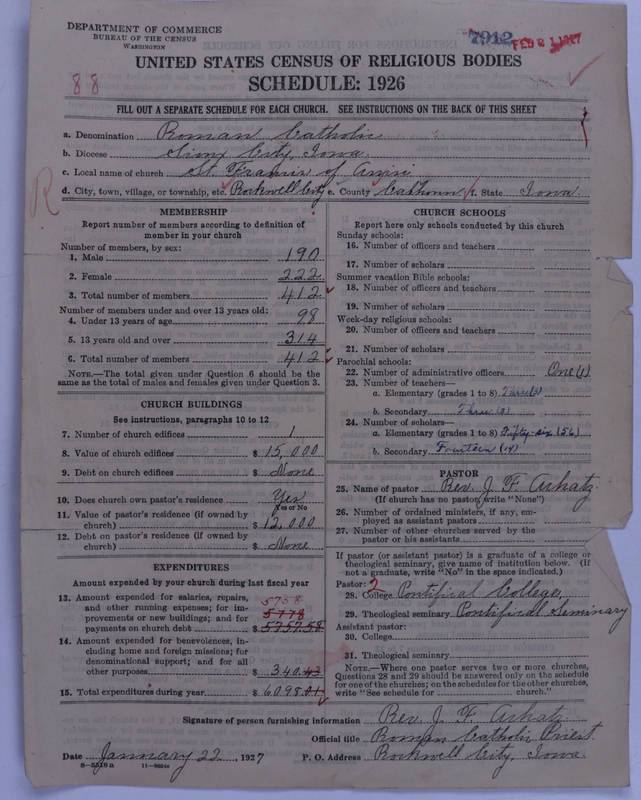 DEPARTMENT OF COMMERCE
BUREAU OF THE CENSUS
WASHINGTON
7912
UNITED STATES CENSUS OF RELIGIOUS BODIES
SCHEDULE: 1926
88
FILL OUT A SEPARATE SCHEDULE FOR EACH CHURCH. SEE INSTRUCTIONS ON THE BACK OF THIS SHEET
a. Denomination Roman Catholic
b. Diocese Sioux City, Iowa.
c. Local name of church St. Francis of Assisi
d. City, town, village, or township, etc. Rockwell City e. County Calhoun f. State Iowa.
R
MEMBERSHIP
Report number of members according to definition of
member in your church
Number of members, by sex:
1. Male 190
2. Female 222
3. Total number of members 412
Number of members under and over 13 years old:
4. Under 13 years of age 98
5. 13 years old and over 314
6. Total number of members 412
NOTE.—The total given under Question 6 should be
same as the total of males and females given under Question 3.
CHURCH BUILDINGS
See instructions, paragraphs 10 to 12
7. Number of church edifices 1
8. Value of church edifices $ 15,000
9. Debt on church edifices $ None
10. Does church own pastor's residence? Yes
Yes or No
11. Value of pastor's residence (if owned by
church) $ 12,000
12. Debt on pastor's residence (if owned by
church) $ None
EXPENDITURES
Amount expended by your church during last fiscal year
13. Amount expended for salaries, repairs, 5758
and other running expenses; for im- 5778
provements or new buildings; and for
payments on church debt $ 5757.58
14. Amount expended for benevolences, in-
cluding home and foreign missions; for
denominational support; and for all
other purposes $ 340.43
15. Total expenditures during year $ 6098.01
CHURCH SCHOOLS
Report here only schools conducted by this church
Sunday schools:
16. Number of officers and teachers
17. Number of scholars
Summer vacation Bible schools:
18. Number of officers and teachers
19. Number of scholars
Week-day religious schools:
20. Number of officers and teachers
21. Number of scholars
Parochial schools:
22. Number of administrative officers One (1)
23. Number of teachers—
a. Elementary (grades 1 to 8) Three (3)
b. Secondary Three (3)
24. Number of scholars—
a. Elementary (grades 1 to 8) Fifty-six (56)
b. Secondary Fourteen (14)
PASTOR
25. Name of pastor Rev. J. F. Arhatz
(If church has no pastor, write "None")
26. Number of ordained ministers, if any, em-
ployed as assistant pastors
27. Number of other churches served by the
pastor or his assistants
If pastor (or assistant pastor) is a graduate of a college or
theological seminary, give name of institution below. (If
not a graduate, write "No" in the space indicated.)
Pastor: 2
28. College Pontifical College,
29. Theological seminary Pontifical Seminary
Assistant pastor:
30. College
31. Theological seminary
NOTE.—Where one pastor serves two or more churches,
Questions 28 and 29 should be answered only on the schedule
for one of the churches; on the schedules for the other churches,
write "See schedule for church."
Signature of person furnishing information Rev. J. F. Arhatz
Official title Roman Catholic Priest.
Date January 22, 1927 P. O. Address Rockwell City, Iowa.